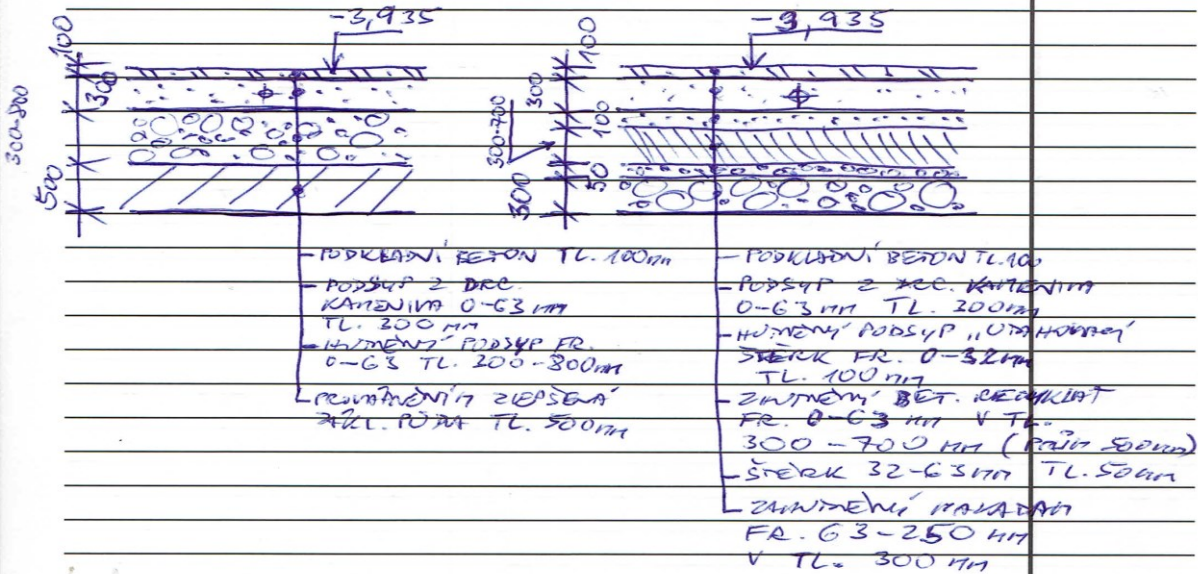 -3,935
100
300
300-800
500
PODKLADNÍ BETON TL. 100mm
PODSYP Z DRC.
KAMENIVA 0-63 mm
TL. 300 mm
HUTNĚNÝ PODSYP FR.
0-63 TL. 300-800mm
ZLEPŠENÁ
ZÁKL. PŮDA TL. 500mm
-3,935
100
300
100
300-700
50
300
PODKLADNÍ BETON TL. 100
PODSYP Z DRC. KAMENIVA
0-63 mm TL. 300mm
HUTNĚNÝ PODSYP „UTAHOVACÍ
ŠTĚRK FR. 0-32mm
TL. 100 mm
ZHUTNĚNÝ BET. RECYKLÁT
FR. 0-63 mm V TL.
300-700 mm (PRŮM 500mm)
ŠTĚRK 32-63mm TL. 50mm
ZHUTNĚNÝ MAKADAM
FR. 63-250 mm
V TL. 300 mm